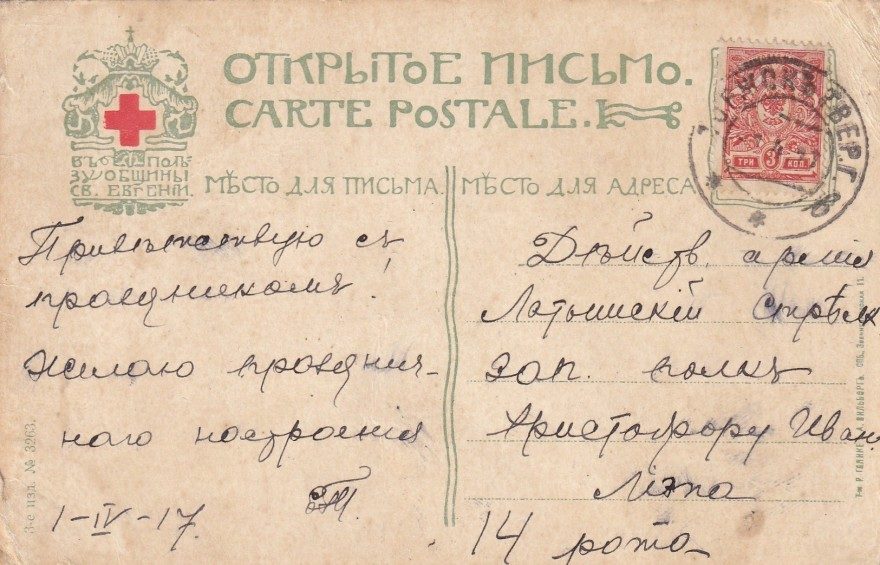 ОТКРЫТОЕ ПИСЬМО.
CARTE POSTALE.
ВЪ ПОЛЬ-
ЗУ ОБЩИНЫ
СВ. ЕВГЕНІИ.
МѢСТО ДЛЯ ПИСЬМА.
МѢСТО ДЛЯ АДРЕСА.
ТРИ 3 КОП.
ТВЕР. Г.
Привѣтствую съ
праздникомъ!
Желаю празднич-
наго настроенія
1-IV-17.
Дѣйств. армія
Латышскій Стрѣлк
зап. полкъ
Аристофору Иван.
Лѣпа
14 рота
3-е изд. № 3263.